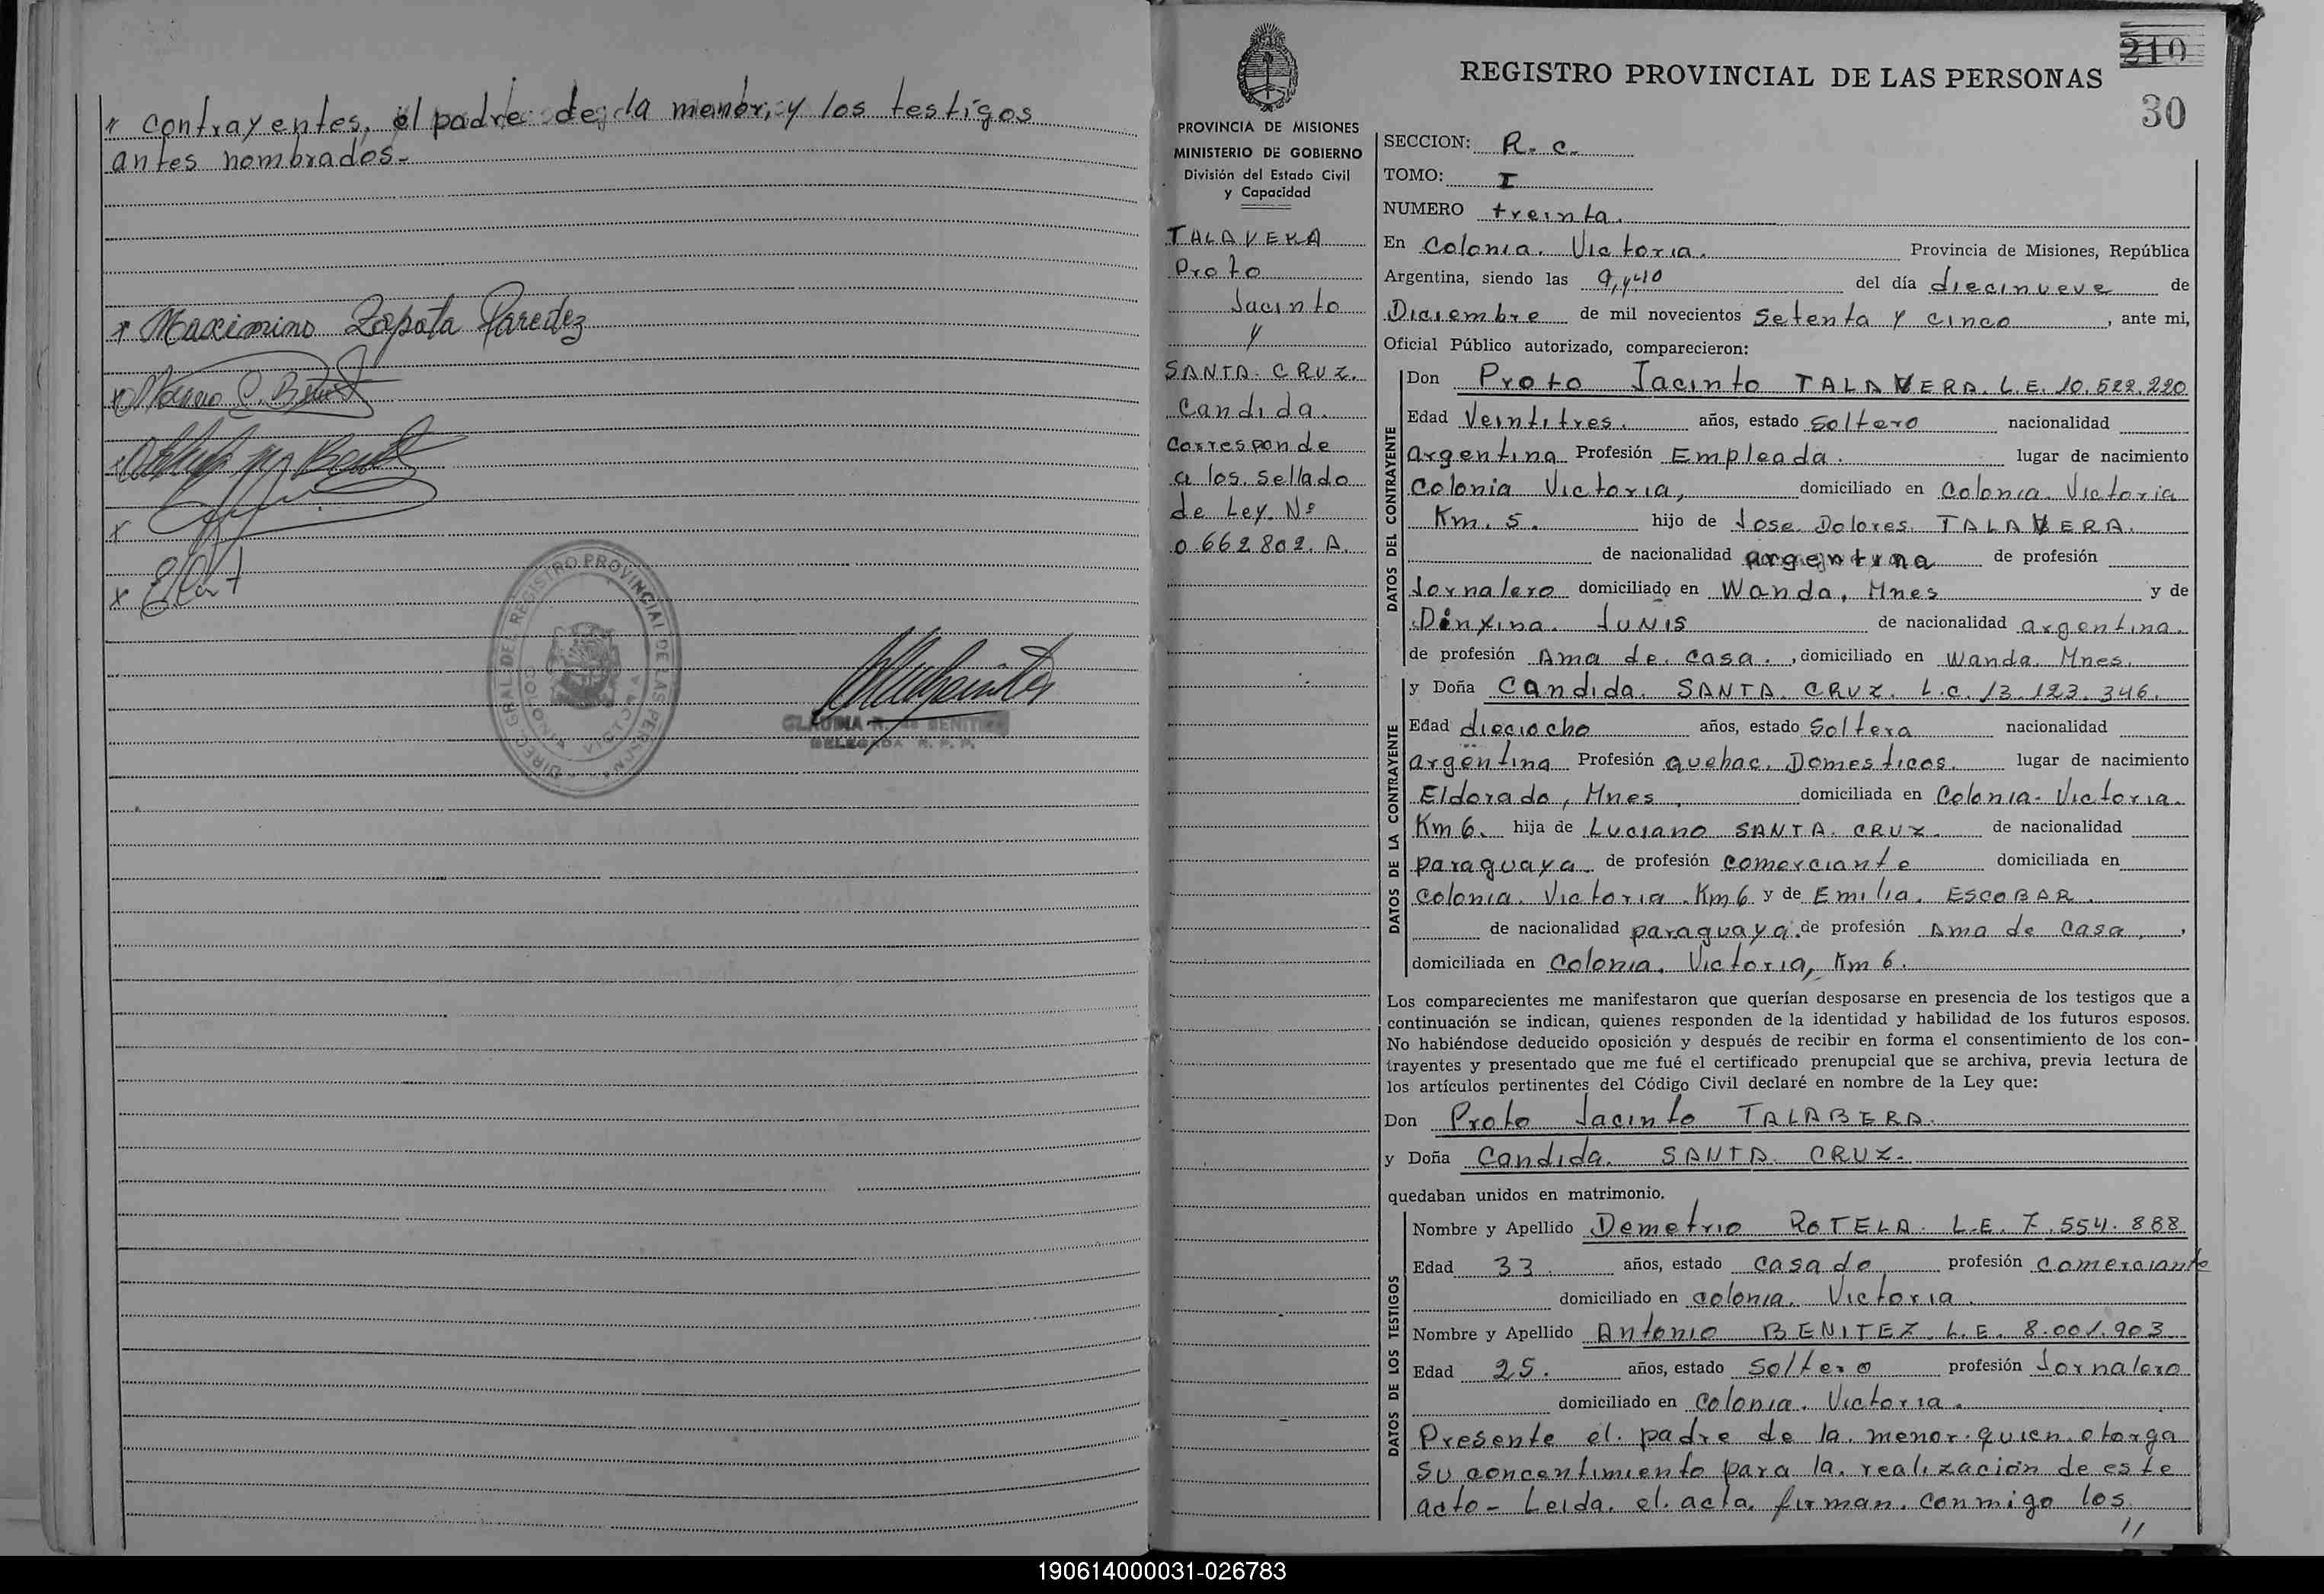 " contrayentes, el padre de la menor, y los testigos
antes nombrados.-
x Maximino Zapata Paredez
x
x
x
x
DIREC. GRAL DEL REGISTRO PROVINCIAL DE LAS PERSONAS
COLONIA VICTORIA
CLAUDIA R. de BENITEZ
DELEGADA R. P. P.
210
REGISTRO PROVINCIAL DE LAS PERSONAS
30
PROVINCIA DE MISIONES
MINISTERIO DE GOBIERNO
División del Estado Civil
y Capacidad
TALAVERA
Proto
Jacinto
y
SANTA CRUZ.
Candida.
Corresponde
a los sellado
de Ley. Nº
0.662802. A.
SECCION: R. C.
TOMO: I
NUMERO treinta.
En Colonia. Victoria. Provincia de Misiones, República
Argentina, siendo las 9, y 40 del día diecinueve de
Diciembre de mil novecientos Setenta y cinco, ante mi,
Oficial Público autorizado, comparecieron:
DATOS DEL CONTRAYENTE
Don Proto Jacinto TALAVERA. L.E. 10.522.220
Edad Veintitres. años, estado Soltero nacionalidad
argentina Profesión Empleada. lugar de nacimiento
Colonia Victoria, domiciliado en Colonia. Victoria
Km. 5. hijo de Jose Dolores. TALAVERA.
de nacionalidad argentina de profesión
Jornalero domiciliado en Wanda, Mnes y de
JUNIS de nacionalidad argentina.
de profesión Ama de. casa. , domiciliado en Wanda. Mnes.
DATOS DE LA CONTRAYENTE
y Doña Candida. SANTA. CRUZ. L.C. 13.123.346.
Edad dieciocho años, estado Soltera nacionalidad
argentina Profesión quehac. Domesticos. lugar de nacimiento
Eldorado, Mnes, domiciliada en Colonia. Victoria.
Km 6. hija de Luciano SANTA. CRUZ. de nacionalidad
paraguaya. de profesión comerciante domiciliada en
Colonia. Victoria. Km 6 y de Emilia. ESCOBAR.
de nacionalidad paraguaya. de profesión Ama de casa,
domiciliada en Colonia. Victoria, Km 6.
Los comparecientes me manifestaron que querían desposarse en presencia de los testigos que a
continuación se indican, quienes responden de la identidad y habilidad de los futuros esposos.
No habiéndose deducido oposición y después de recibir en forma el consentimiento de los con-
trayentes y presentado que me fué el certificado prenupcial que se archiva, previa lectura de
los artículos pertinentes del Código Civil declaré en nombre de la Ley que:
Don Proto Jacinto TALABERA.
y Doña Candida. SANTA. CRUZ.
quedaban unidos en matrimonio.
DATOS DE LOS TESTIGOS
Nombre y Apellido Demetrio ROTELA. L.E. 7.554.888
Edad 33. años, estado casado profesión comerciante
domiciliado en colonia. Victoria.
Nombre y Apellido Antonio BENITEZ. L.E. 8.001.903
Edad 25. años, estado Soltero profesión Jornalero
domiciliado en Colonia. Victoria.
Presente el. padre de la. menor. quien. otorga
su concentimiento para la. realización de este
acto- Leida. el. acta. firman. conmigo los
//
190614000031-026783